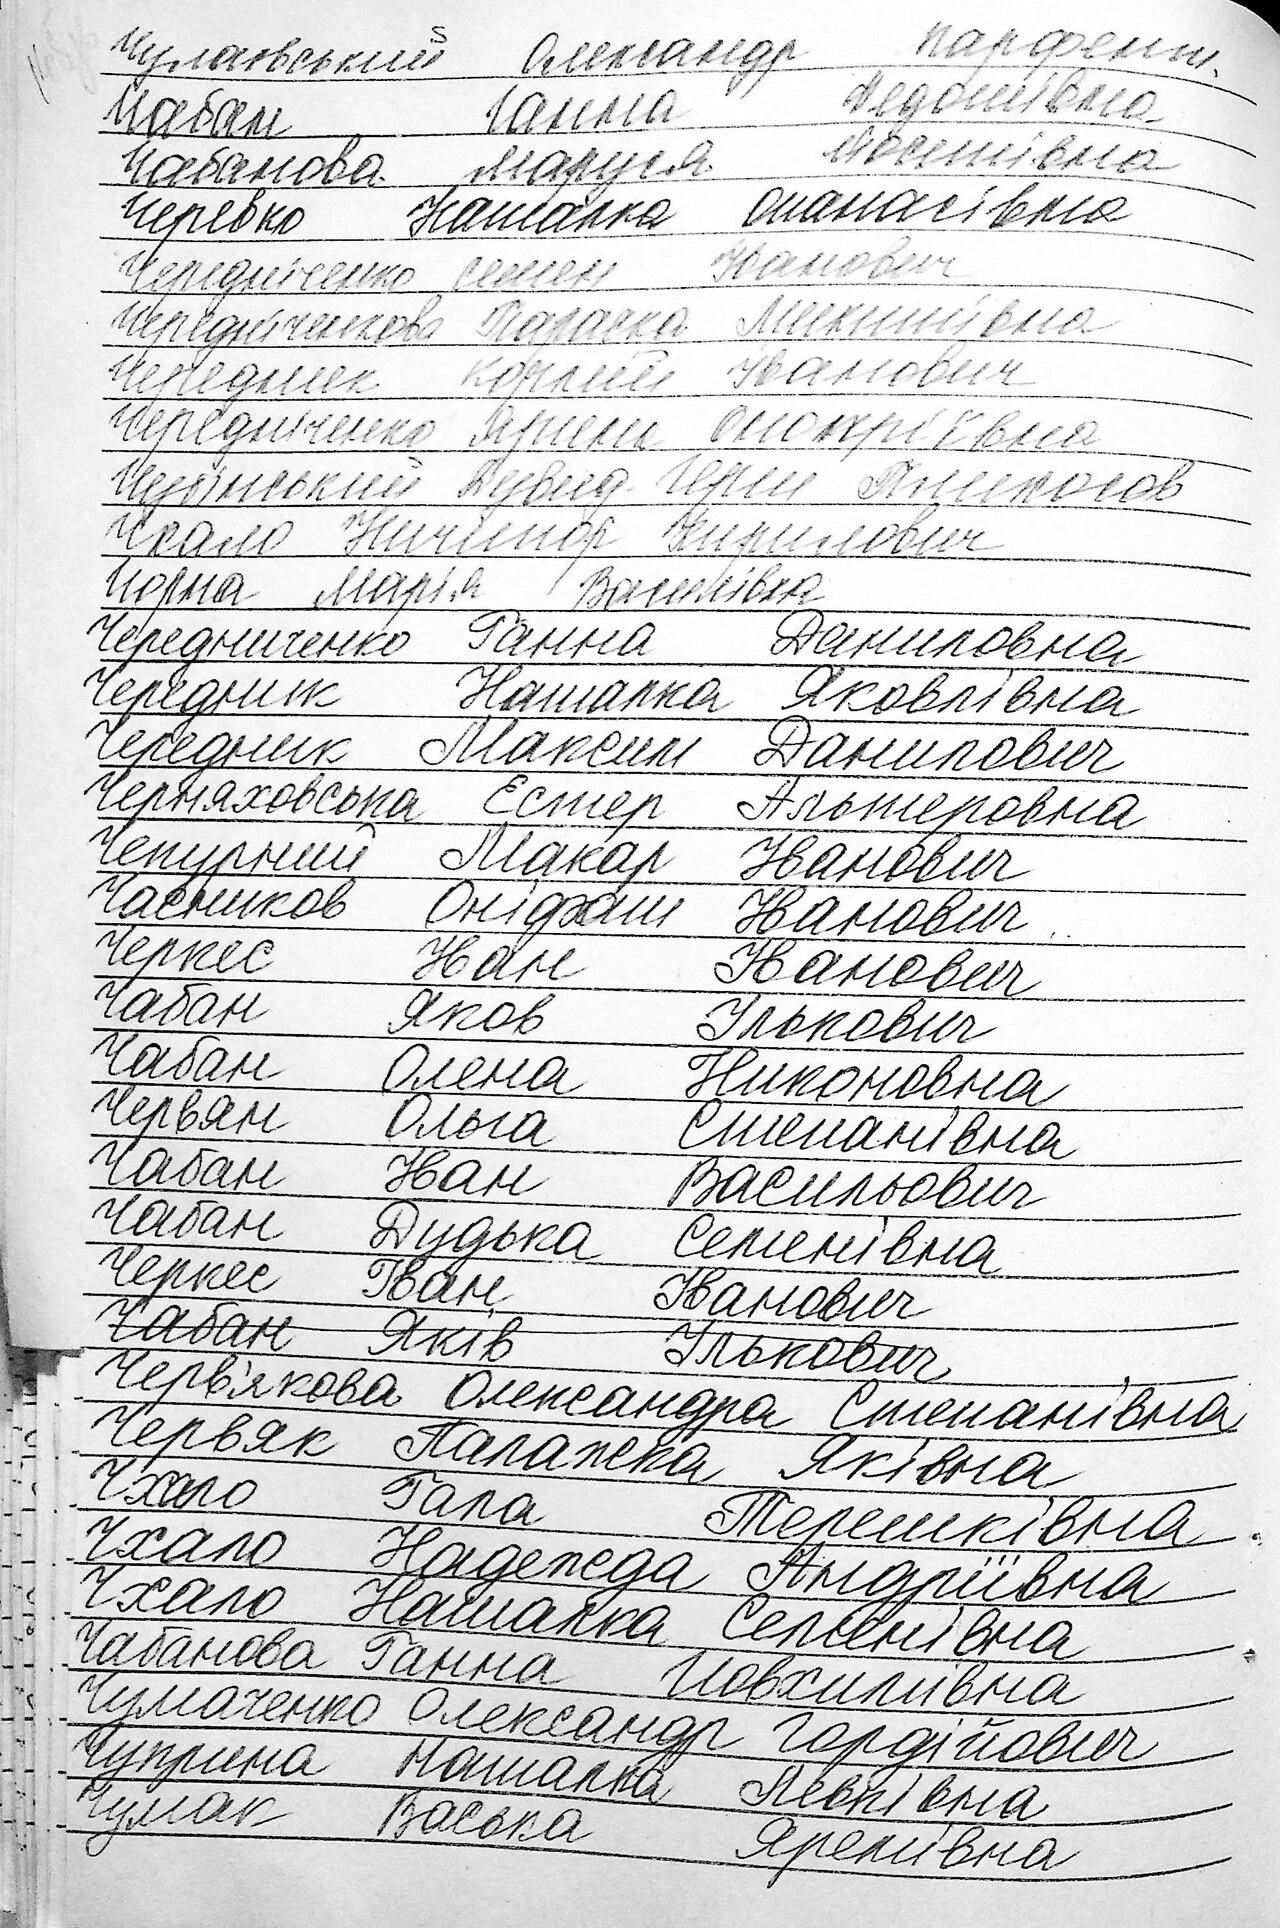 Чулаївський Олександр Парфент.
Чабан Ганна Федотівна
Чабанова Маруся Йосипівна
Черевко Наталка Опанасівна
Чередніченко Семен Іванович
Чередніченкова Параска Микитівна
Чередник Корній Іванович
Чередніченко Ярина Онопріївна
Давид Герш
Чкало Ничипор Кирилович
Чорна Марія Василівна
Чередниченко Ганна Даниловна
Чередник Наталка Яковлівна
Чередник Максим Данилович
Черняховська Естер Альтеровна
Чепурний Макар Іванович
Часников Оніфат Іванович
Черкес Іван Іванович
Чабан Яков Улькович
Чабан Олена Никоновна
Червян Ольга Степанівна
Чабан Іван Васильович
Чабан Дудька Семенівна
Черкес Іван Іванович
Чабан Яків Улькович
Черв'якова Олександра Степанівна
Червяк Палажка Яківна
Чхало Гала Терешківна
Чхало Надежда Андріївна
Чхало Наталка Семенівна
Чабанова Ганна Йовхимівна
Чумаченко Олександр Гордійович
Чуприна Наталка Левківна
Чумак Васька Яремівна